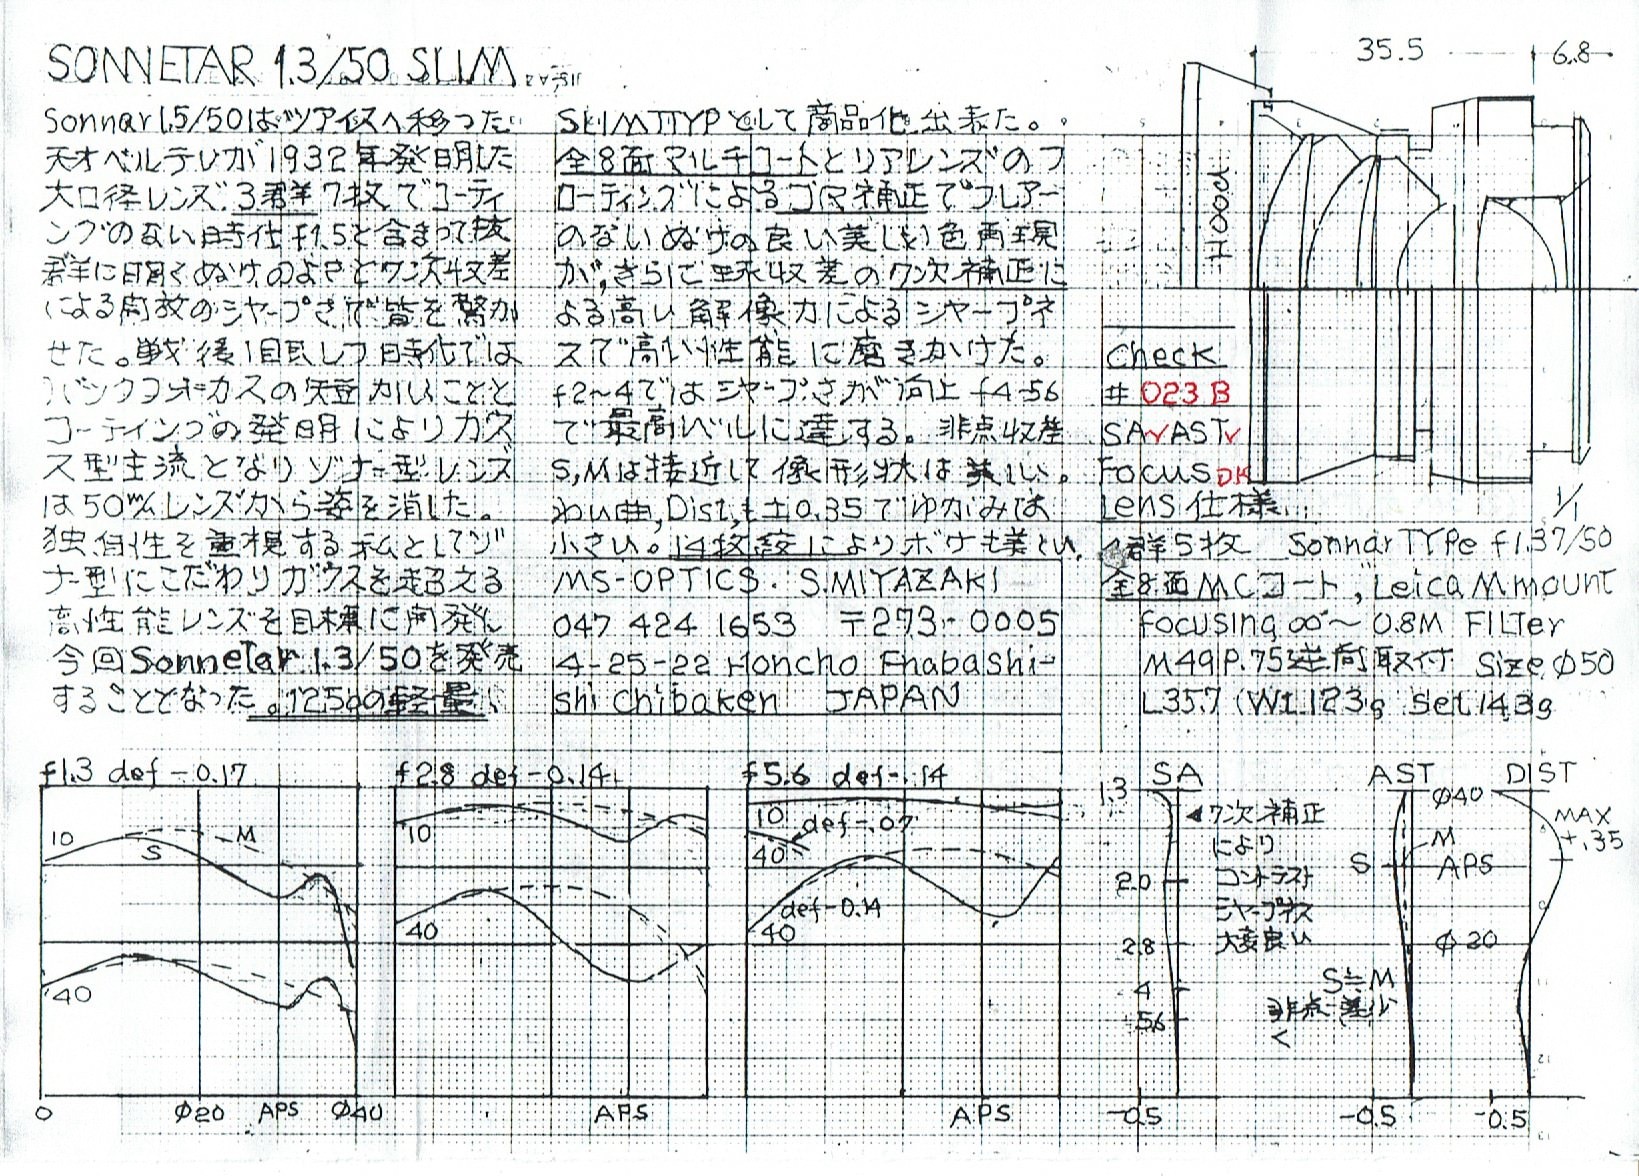 SONNETAR 1.3/50 SLIM
Sonnar 1.5/50はツアイスへ移った
天才ベルテレが1932年発明した
大口径レンズ.3群7枚でコーティ
ングのない時代f1.5と合まって抜
群に明るくぬけのよさと7次収差
による開放のシャープさで皆を驚か
せた。戦後1眼レフ時代では
バックフォーカスの短かいことと
コーティングの発明によりガウ
ス型主流となりゾナー型レンズ
は50m/mレンズから姿を消した。
独自性を重視する私としてゾ
ナー型にこだわりガウスを超える
高性能レンズを目標に開発し
今回Sonnetar 1.3/50を発売
することとなった。125gの軽量
SLIMTYPとして商品化出来た。
全8面マルチコートとリアレンズのフ
ローティングによるコマ補正でフレアー
のないぬけの良い美しい色再現
が,さらに球収差の7次補正に
よる高い解像力によるシャープネ
スで高い性能に磨きかけた。
f2~4ではシャープさが向上f4-56
で最高レベルに達する。非点収差
S,Mは接近して像形状は美しい。
わい曲,Dist,も±0.35でゆがみは
小さい。14枚絞によりボケも美しい
MS-OPTICS. S.MIYAZAKI
047 424 1653 〒273-0005
4-25-22 Honcho Fnabashi-
shi Chibaken JAPAN
35.5 6.8
Hood
Check
# 023 B
SA✓AST✓
Focus OK
Lens仕様
1/1
4群5枚 Sonnar TYPe f1.37/50
全8面MCコート, Leica M mount
focusing ∞~0.8M FILTer
M49P.75逆向取付 Size φ50
L35.7 (Wt.123g Set 143g
f1.3 def-0.17
10
M
S
40
0 φ20 APS φ40
f2.8 def-0.14
10
40
APS
f5.6 def-.14
10
def-.07
40
def-0.14
40
APS
SA
1.3
2.0
2.8
4
5.6
-0.5
◀7次補正
により
コントラスト
シャープネス
大変良い
AST
φ40
M
S APS
φ20
S≒M
非点差少
く
-0.5
DIST
MAX
+.35
-0.5